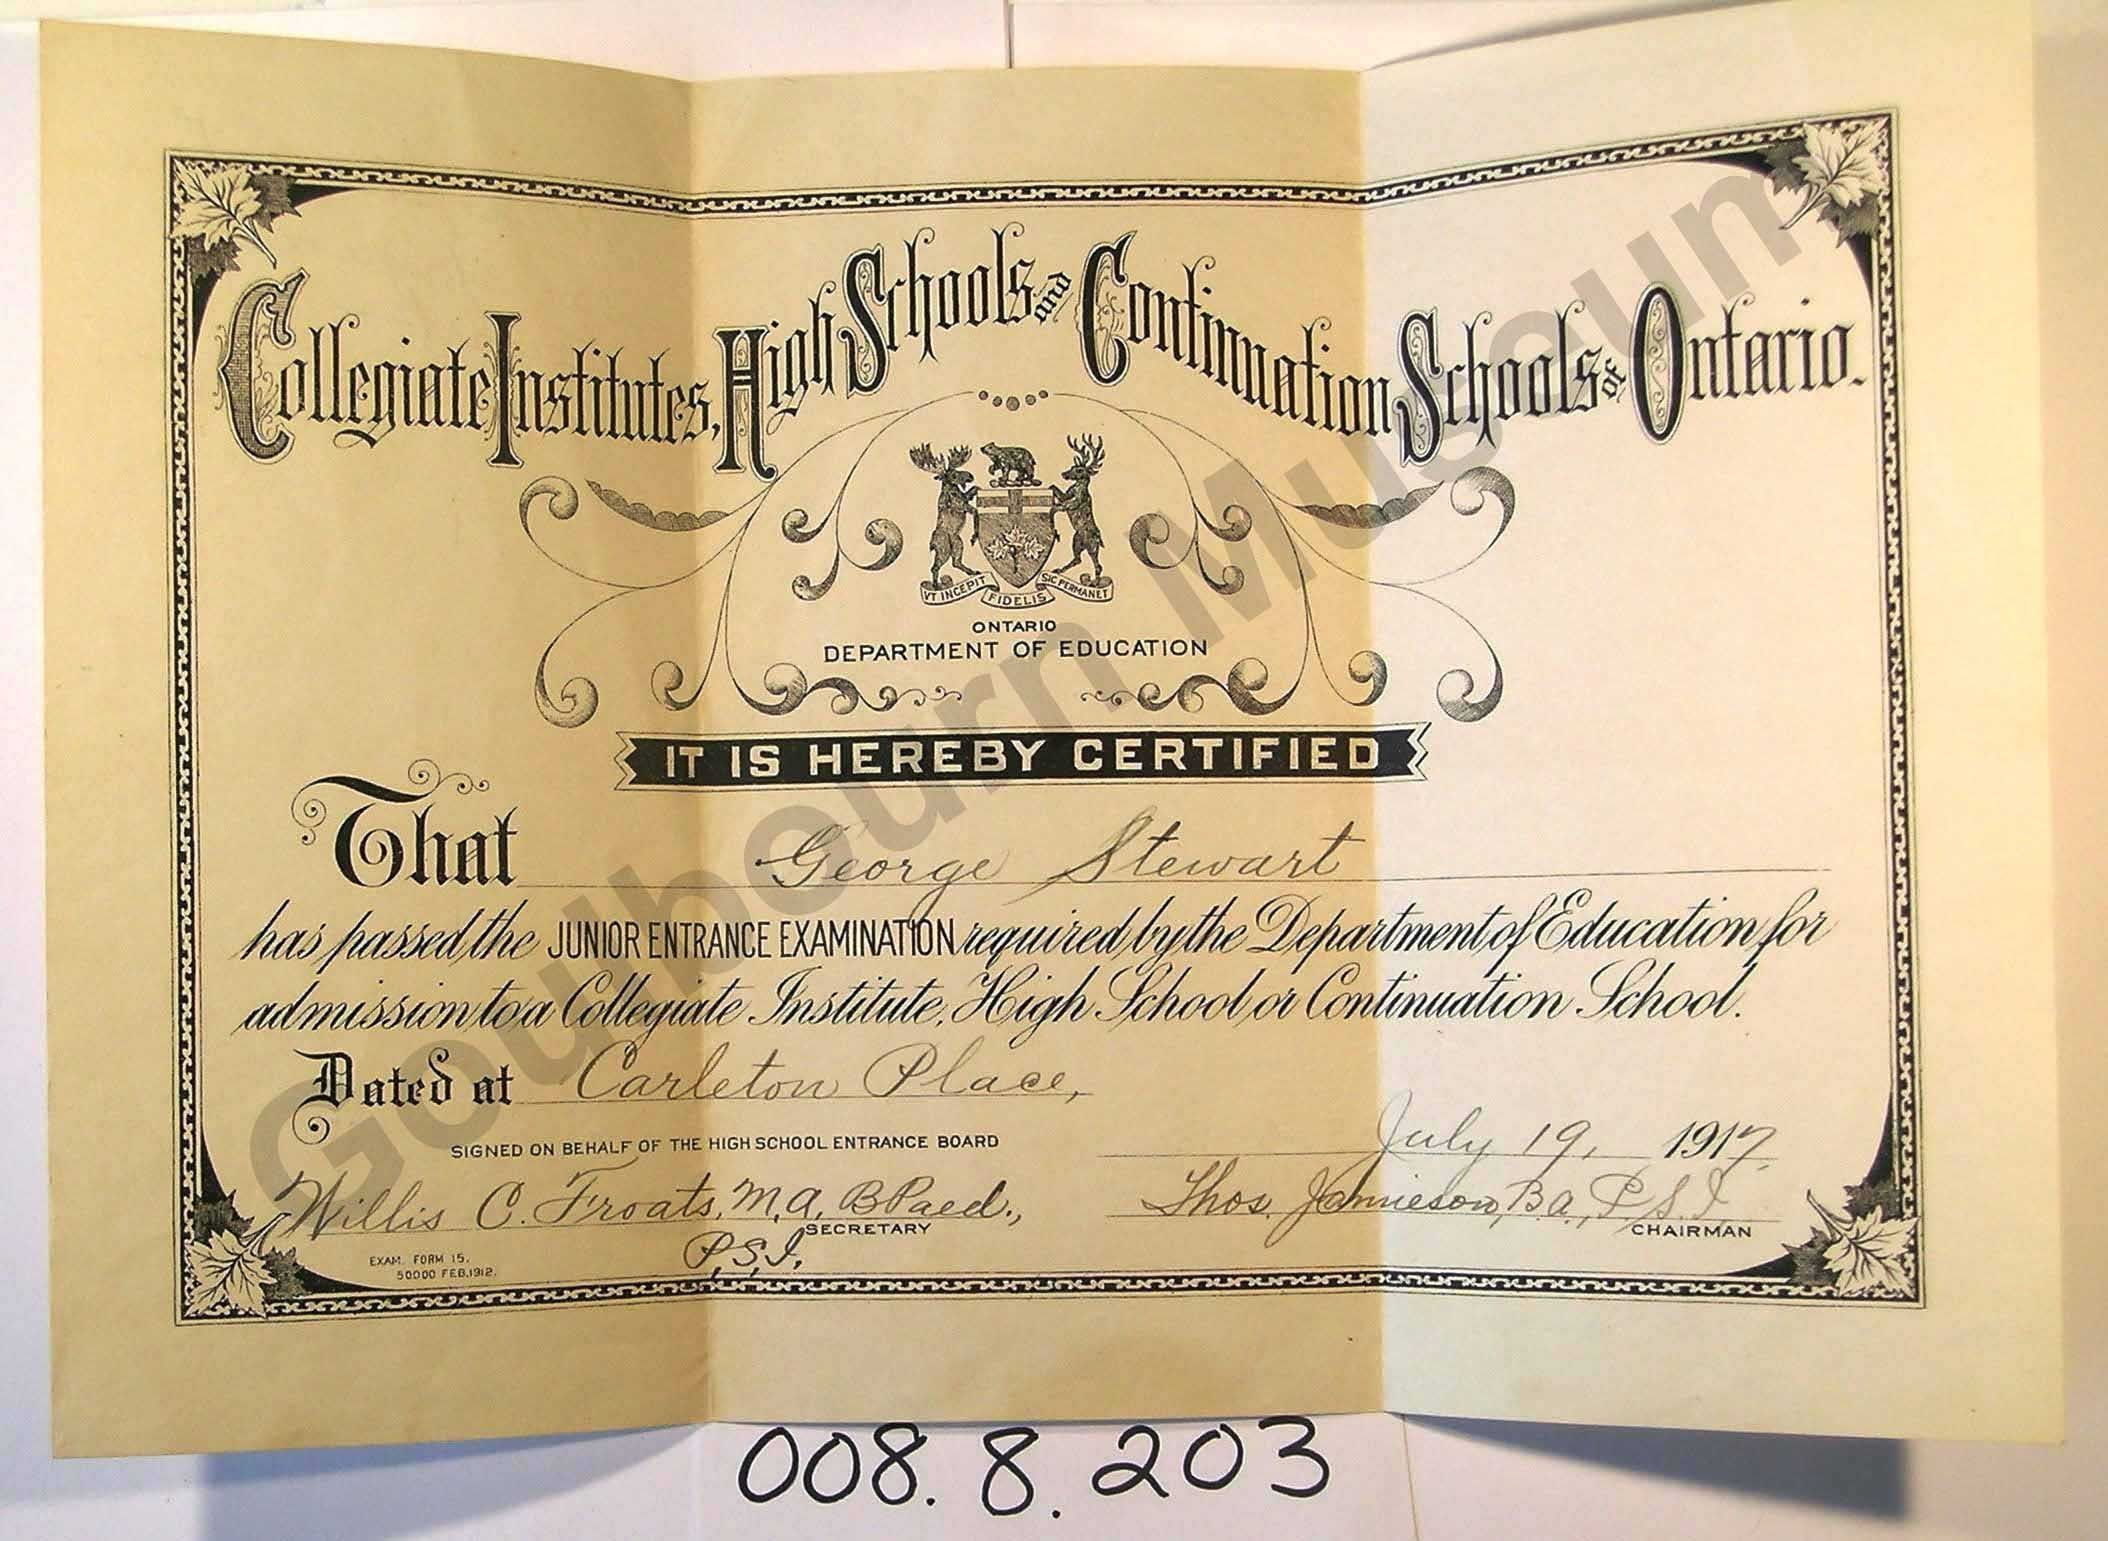 Collegiate Institutes, High Schools and Continuation Schools of Ontario.
VT INCEPIT FIDELIS SIC PERMANET
ONTARIO
DEPARTMENT OF EDUCATION
IT IS HEREBY CERTIFIED
That George Stewart
has passed the JUNIOR ENTRANCE EXAMINATION required by the Department of Education for
admission to a Collegiate Institute, High School or Continuation School.
Dated at Carleton Place,
July 19, 1917.
SIGNED ON BEHALF OF THE HIGH SCHOOL ENTRANCE BOARD
Willis C. Froats, M.A. B Paed., P.S.I.
SECRETARY
Thos. Jamieson, B.A., P.S.I
CHAIRMAN
EXAM. FORM 15.
50000 FEB.1912.
Goulbourn Museum
008.8.203